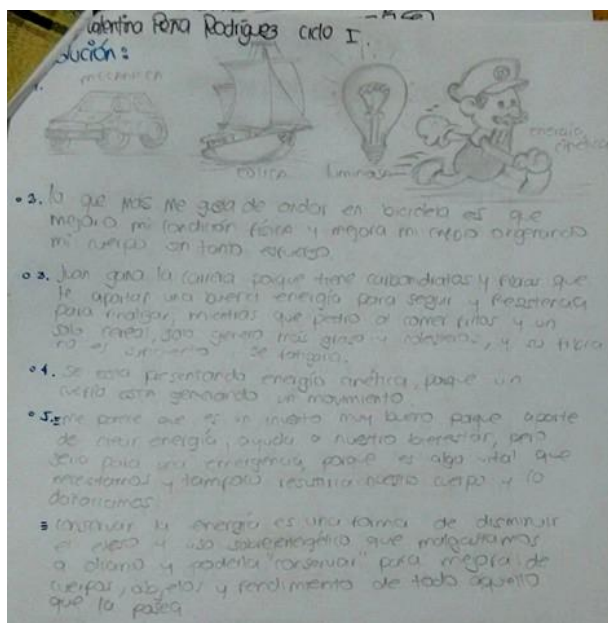 Valentina Peña Rodríguez ciclo I.
solución:
1. mecánica
eólica
luminosa
energía cinética
2. lo que más me gusta de andar en bicicleta es que
mejoro mi condición física y mejora mi
mi cuerpo sin tanto esfuerzo.
3. Juan gana la carrera porque tiene carbohidratos y que
le aportan una buena energía para seguir y resistencia
para finalizar, mientras que pedro al comer fritos y un
solo cereal, solo genera más grasa y colesterol, y su fibra
no es se fatigaría.
4. se está presentando energía cinética, porque un
cuerpo está generando un movimiento.
5. me parece que es un invento muy bueno porque aparte
de crear energía, ayuda a nuestro bienestar, pero
sería para una emergencia, porque es algo vital que
necesitamos y tampoco nuestro cuerpo y lo
dañaríamos
conservar la energía es una forma de disminuir
el y uso que malgastamos
a diario y poderla "conservar" para mejora de
cuerpos, objetos y rendimiento de todo aquello
que la posea